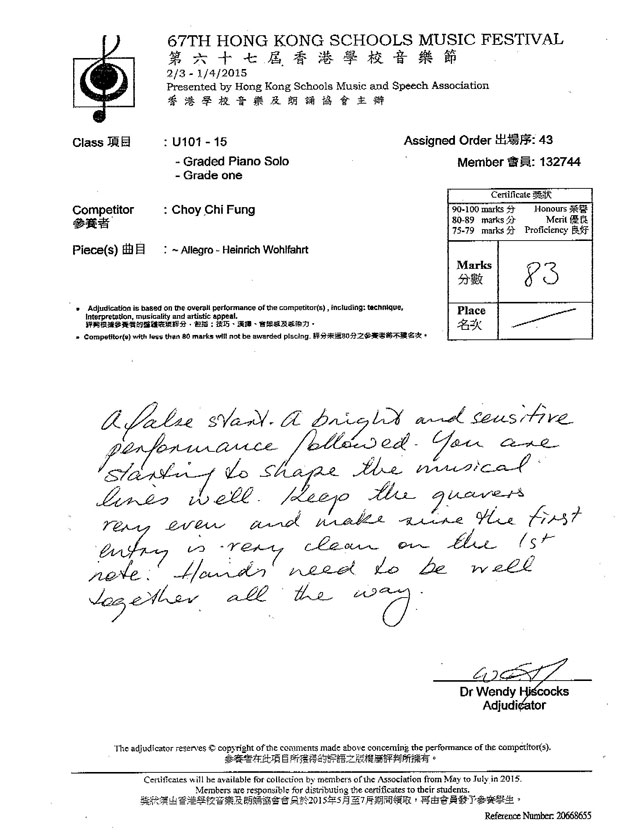 67TH HONG KONG SCHOOLS MUSIC FESTIVAL
第六十七屆香港學校音樂節
2/3 - 1/4/2015
Presented by Hong Kong Schools Music and Speech Association
香港學校音樂及朗誦協會主辦
Class 項目 : U101 - 15
- Graded Piano Solo
- Grade one
Assigned Order 出場序: 43
Member 會員: 132744
Competitor : Choy Chi Fung
參賽者
Piece(s) 曲目 : ~ Allegro - Heinrich Wohlfahrt
Certificate 獎狀
90-100 marks 分 Honours 榮譽
80-89 marks 分 Merit 優良
75-79 marks 分 Proficiency 良好
Marks 83
分數
Place
名次
* Adjudication is based on the overall performance of the competitor(s), including: technique,
interpretation, musicality and artistic appeal.
評判根據參賽者的整體表現評分，包括：技巧、演繹、音樂感及感染力。
* Competitor(s) with less than 80 marks will not be awarded placing. 評分未達80分之參賽者將不獲名次。
A false start. A bright and sensitive
performance followed. You are
starting to shape the musical
lines well. Keep the quavers
very even and make sure the first
entry is very clean on the 1st
note. Hands need to be well
together all the way.
Dr Wendy Hiscocks
Adjudicator
The adjudicator reserves © copyright of the comments made above concerning the performance of the competitor(s).
參賽者在此項目所獲得的評語之版權屬評判所擁有。
Certificates will be available for collection by members of the Association from May to July in 2015.
Members are responsible for distributing the certificates to their students.
獎狀須由香港學校音樂及朗誦協會會員於2015年5月至7月期間領取，再由會員發予參賽學生。
Reference Number: 20668655